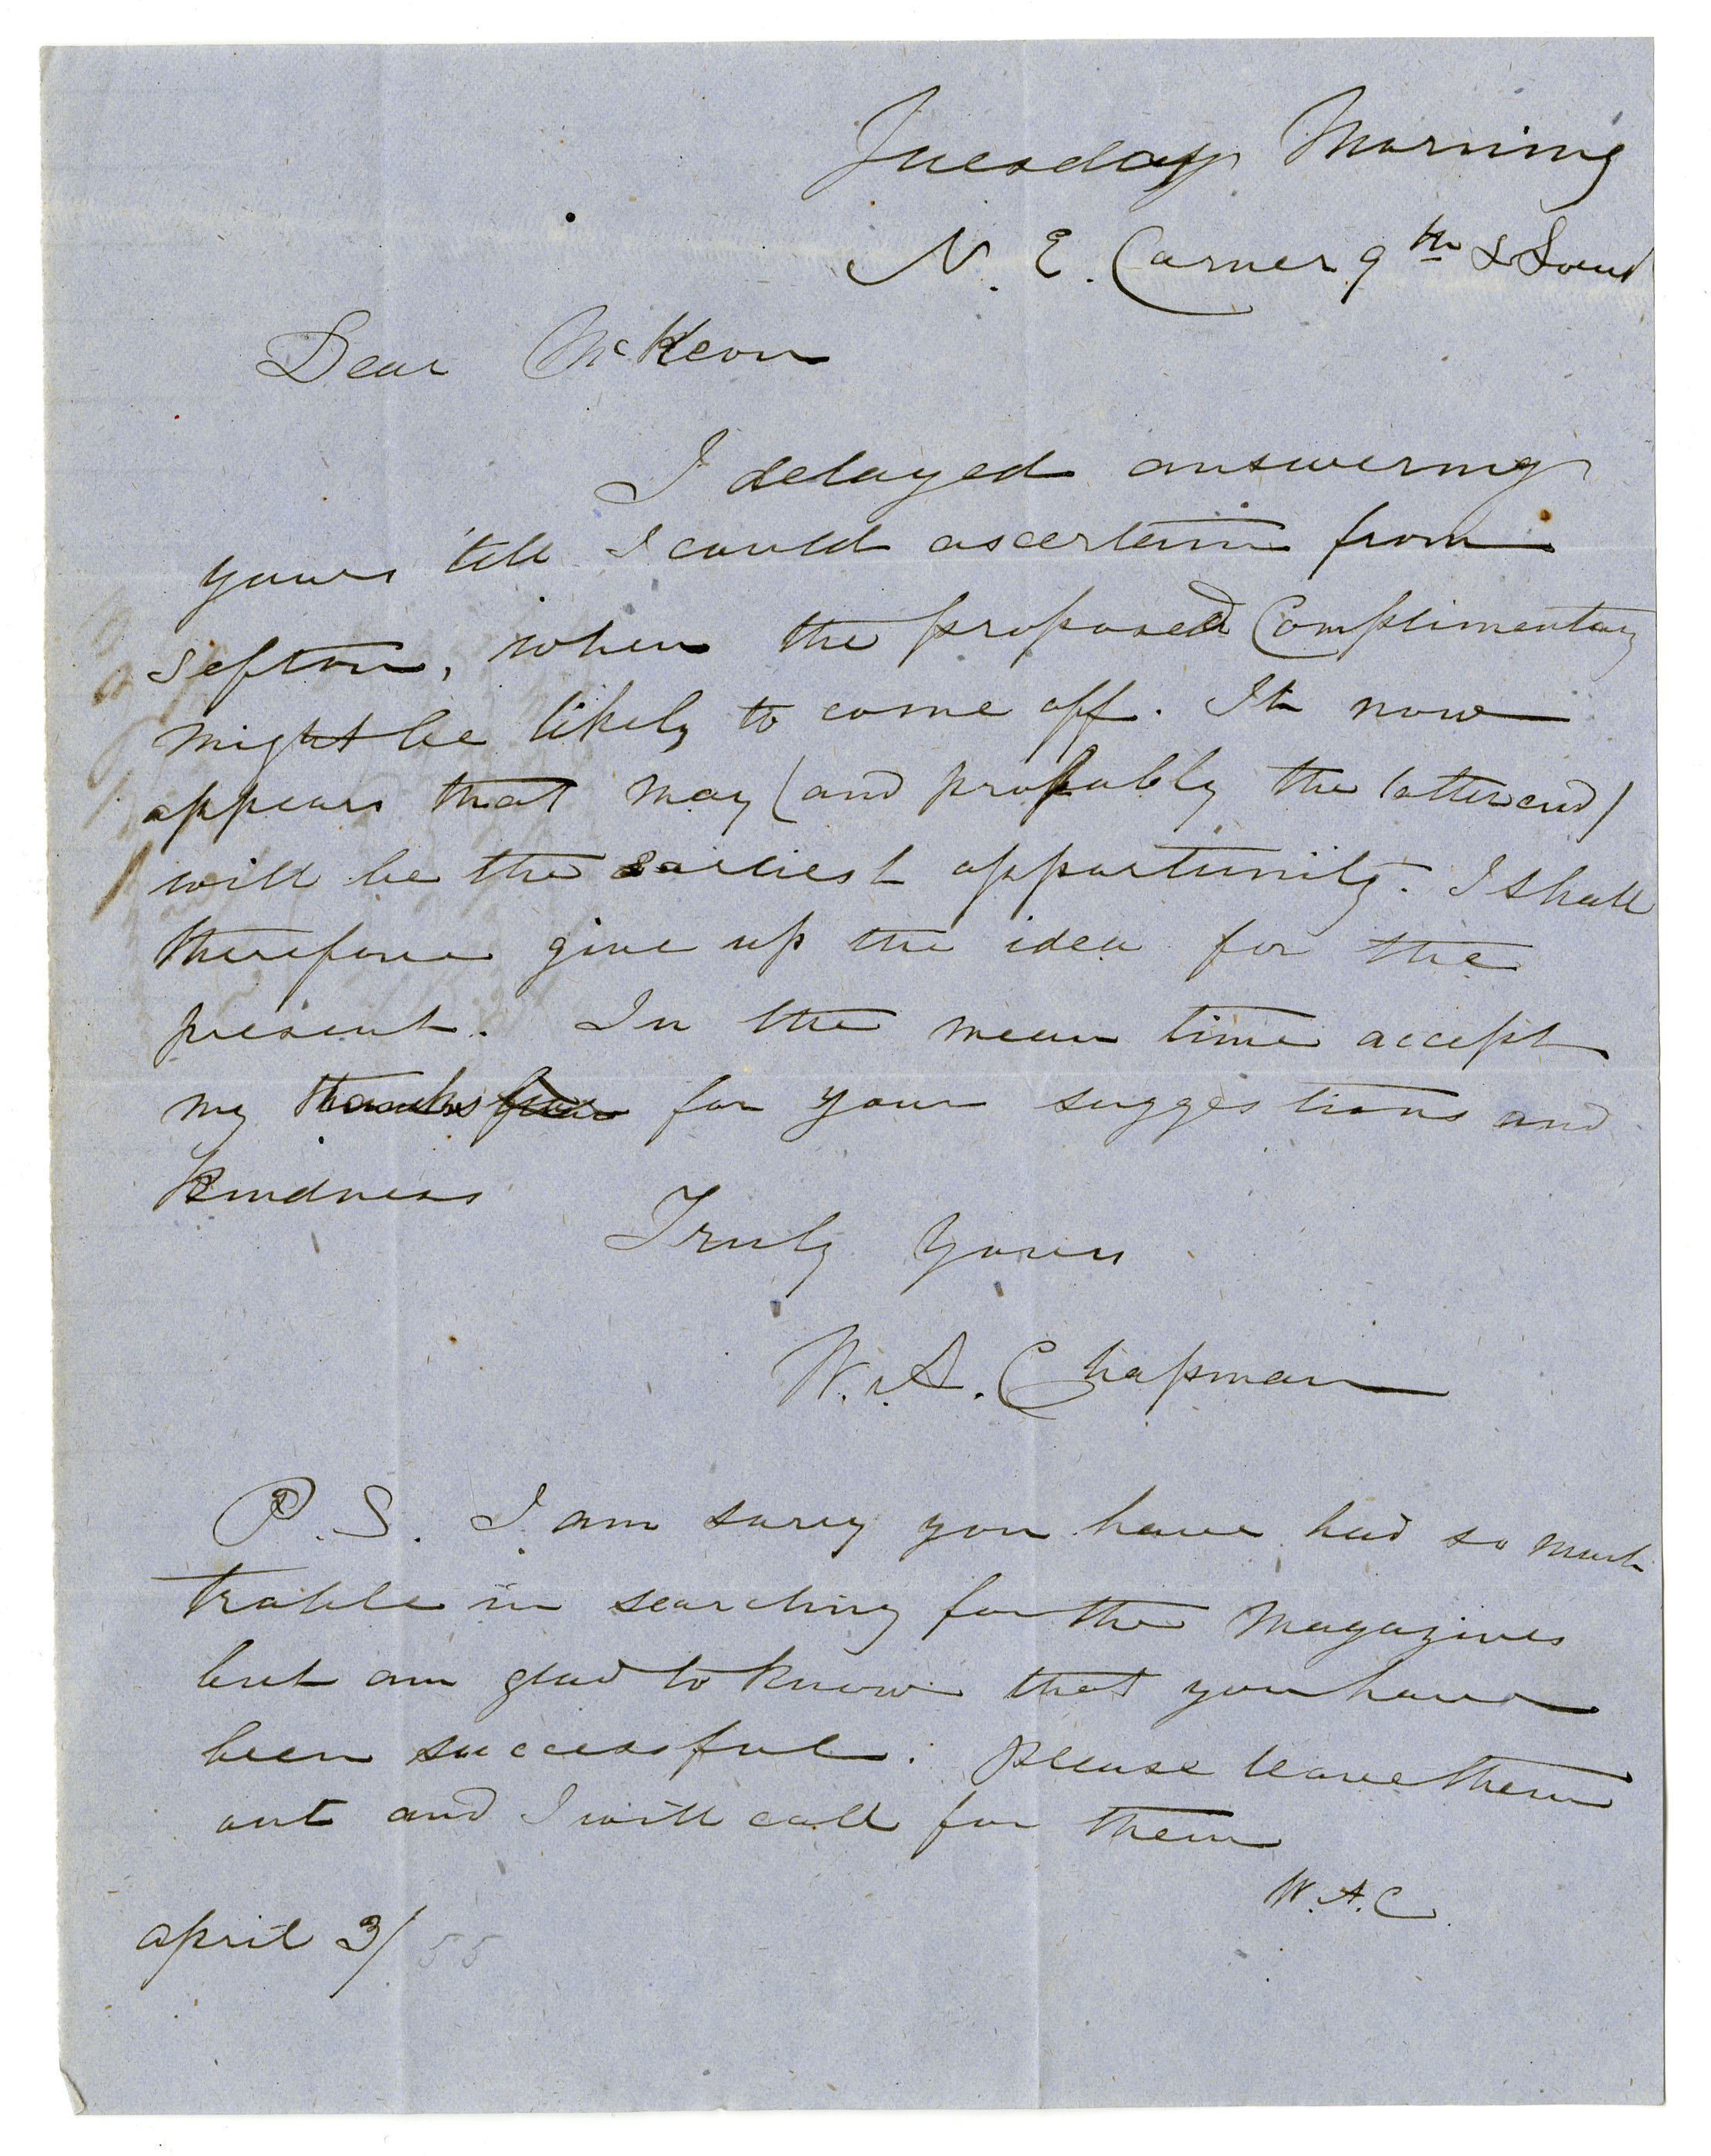 Tuesday Morning
N. E. Corner 9th &
Dear McKeon
I delayed answering
yours till I could ascertain from
Sefton, when the proposed Complimentary
might be likely to come off. It now
appears that May (and probably the latter end)
will be the earliest opportunity. I shall
therefore give up the idea for the
present. In the mean time accept
my thanks for your suggestions and
kindness
Truly Yours
W. A. Chapman
P. S. I am sorry you have had so much
troble in searching for the Magazines
but am glad to know that you have
been successful. please leave them
out and I will call for them
W. A. C.
april 3/ 55